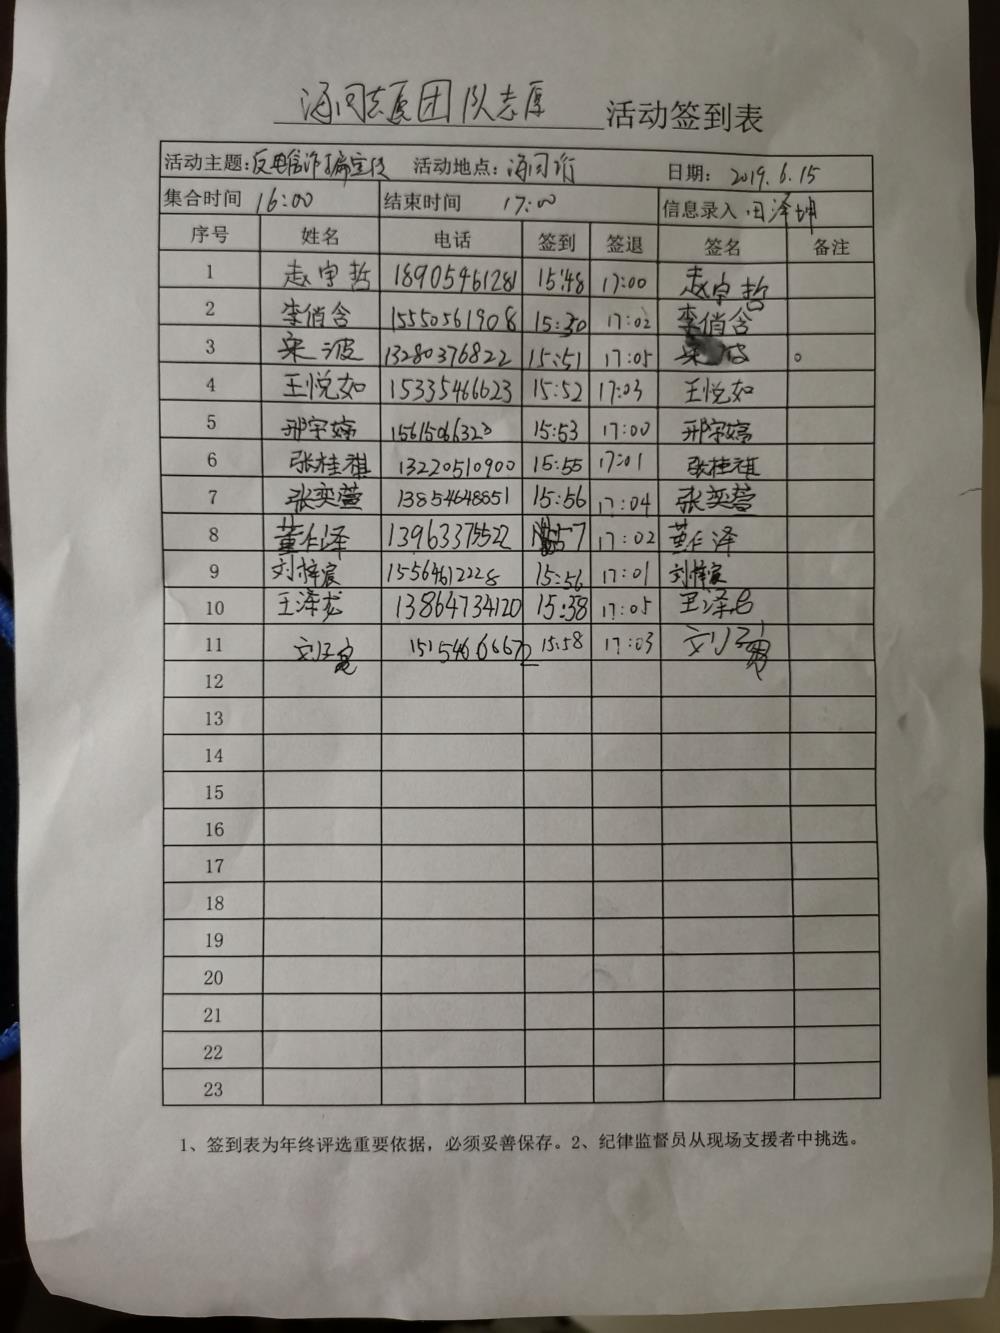 海河志愿团队志愿 活动签到表
活动主题：反电信诈骗宣传 活动地点：海河 日期： 2019.6.15
集合时间 16:00 结束时间 17:00 信息录入 田泽坤
序号 姓名 电话 签到 签退 签名 备注
1 赵宇哲 18905461281 15:48 17:00 赵宇哲
2 李俏含 15550561908 15:30 17:02 李俏含
3 宋波 13280376822 15:51 17:05 宋波
4 王悦如 15335466623 15:52 17:03 王悦如
5 邢宇婷 15615066320 15:53 17:00 邢宇婷
6 张桂祺 13220510900 15:55 17:01 张桂祺
7 张奕萱 13854648851 15:56 17:04 张奕萱
8 董仁泽 13963375522 57 17:02 董仁泽
9 刘梓宸 15564612228 15:56 17:01 刘梓宸
10 王泽龙 13864734120 15:38 17:05 王泽龙
11 刘子 15154666672 15:58 17:03 刘子
12
13
14
15
16
17
18
19
20
21
22
23
1、签到表为年终评选重要依据，必须妥善保存。2、纪律监督员从现场支援者中挑选。